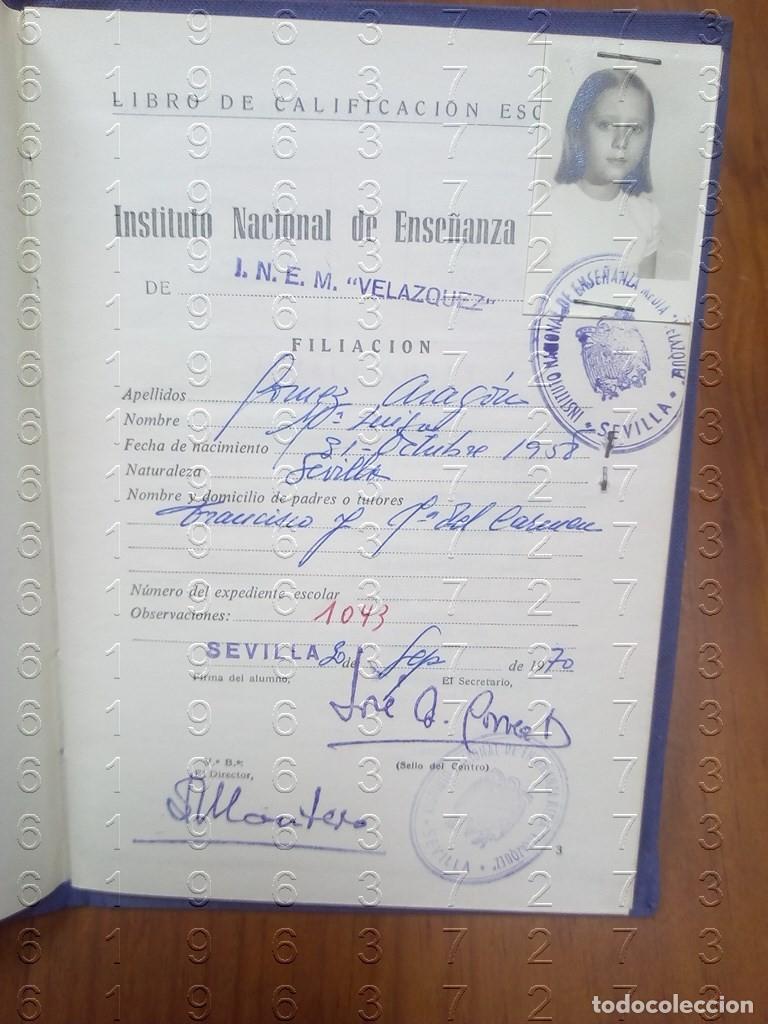 LIBRO DE CALIFICACION ESC
Instituto Nacional de Enseñanza
DE I. N. E. M. "VELAZQUEZ"
INSTITUTO NACIONAL DE ENSEÑANZA MEDIA · VELAZQUEZ · SEVILLA
FILIACION
Apellidos Gomez Aragón
Nombre Mª Luisa
Fecha de nacimiento 31 - Octubre 1958
Naturaleza Sevilla
Nombre y domicilio de padres o tutores
Francisco y Mª del Carmen
Número del expediente escolar
Observaciones: 1043
SEVILLA 20 de Sep de 1970
Firma del alumno, El Secretario,
José
V.º B.º:
El Director, (Sello del Centro)
Montero
SEVILLA
3
todocoleccion
6 1 9 6 3 7 2 7 3